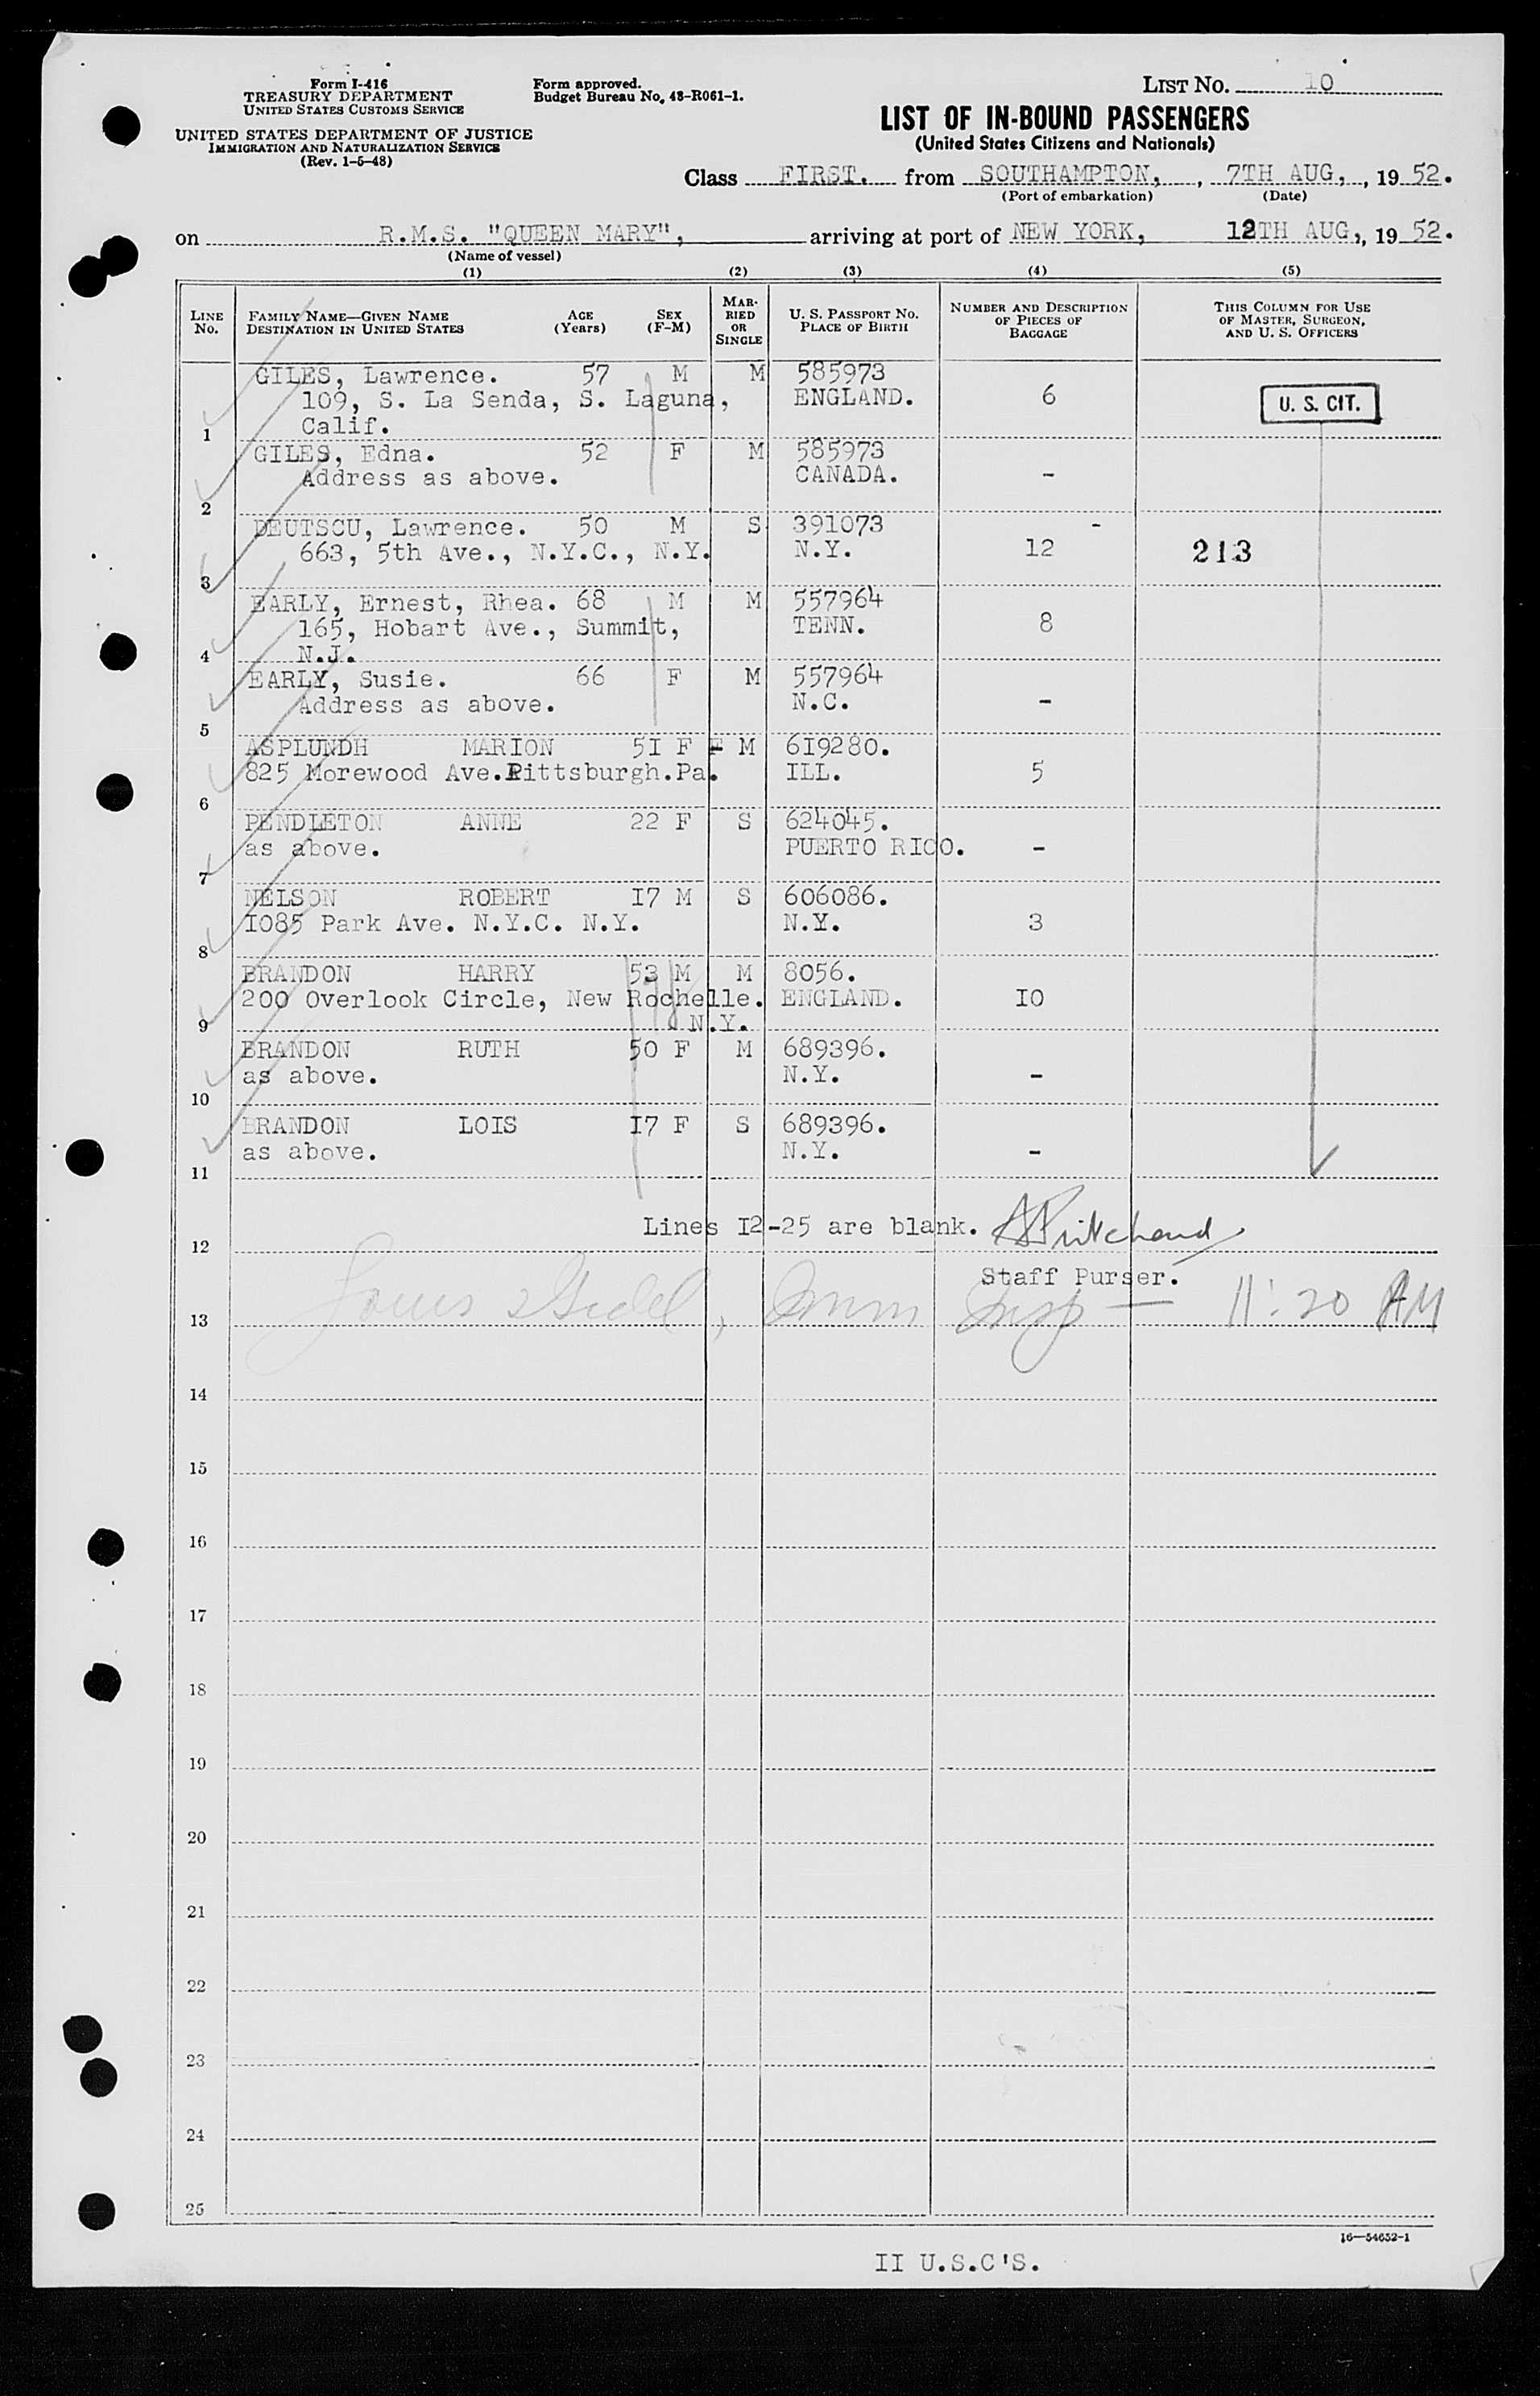 Form I-416
TREASURY DEPARTMENT
UNITED STATES CUSTOMS SERVICE
UNITED STATES DEPARTMENT OF JUSTICE
IMMIGRATION AND NATURALIZATION SERVICE
(Rev. 1-5-48)
Form approved.
Budget Bureau No. 43-R061-1.
LIST No. 10
LIST OF IN-BOUND PASSENGERS
(United States Citizens and Nationals)
Class FIRST. from SOUTHAMPTON, , 7TH AUG, , 19 52.
(Port of embarkation) (Date)
on R.M.S. "QUEEN MARY", arriving at port of NEW YORK, 12TH AUG, , 19 52.
(Name of vessel)
(1) (2) (3) (4) (5)
LINE No. FAMILY NAME—GIVEN NAME DESTINATION IN UNITED STATES AGE (Years) SEX (F-M) MARRIED OR SINGLE U. S. PASSPORT No. PLACE OF BIRTH NUMBER AND DESCRIPTION OF PIECES OF BAGGAGE THIS COLUMN FOR USE OF MASTER, SURGEON, AND U. S. OFFICERS
GILES, Lawrence. 57 M M 585973
109, S. La Senda, S. Laguna, ENGLAND. 6 U. S. CIT.
1 Calif.
GILES, Edna. 52 F M 585973
Address as above. CANADA. -
2
DEUTSCU, Lawrence. 50 M S 391073 -
663, 5th Ave., N.Y.C., N.Y. N.Y. 12 213
3
EARLY, Ernest, Rhea. 68 M M 557964
165, Hobart Ave., Summit, TENN. 8
4 N.J.
EARLY, Susie. 66 F M 557964
Address as above. N.C. -
5
ASPLUNDH MARION 5I F F M 6I9280.
825 Morewood Ave.Pittsburgh.Pa. ILL. 5
6
PENDLETON ANNE 22 F S 624045.
as above. PUERTO RICO. -
7
NELSON ROBERT I7 M S 606086.
I085 Park Ave. N.Y.C. N.Y. N.Y. 3
8
BRANDON HARRY 53 M M 8056.
200 Overlook Circle, New Rochelle. ENGLAND. IO
9 N.Y.
BRANDON RUTH 50 F M 689396.
as above. N.Y. -
10
BRANDON LOIS I7 F S 689396.
as above. N.Y. -
11
Lines I2-25 are blank. Pritchard
12
Staff Purser.
13 Louis , Imm Insp — 11:20 AM
14
15
16
17
18
19
20
21
22
23
24
25
16—54652-1
II U.S.C'S.